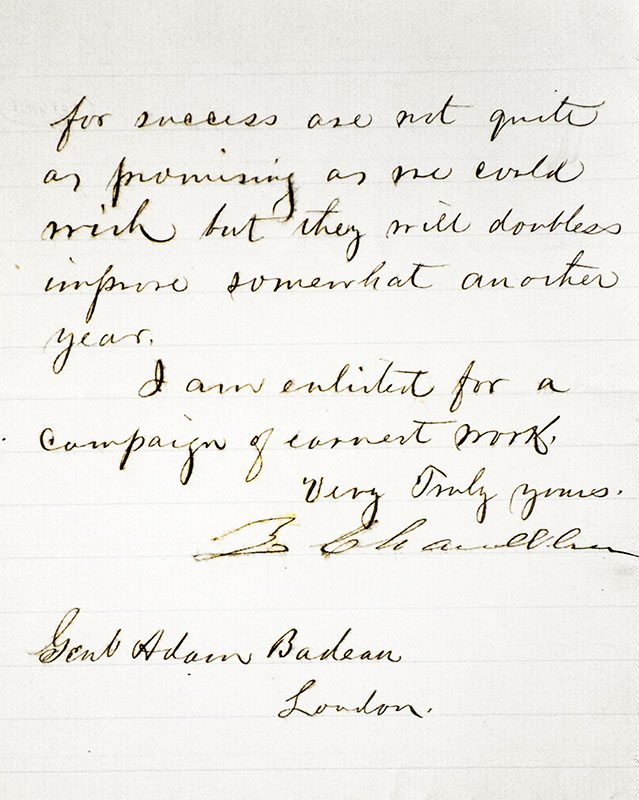 for success are not quite
as promising as we could
wish but they will doubless
improve somewhat another
year.
I am enlisted for a
campaign of earnest work.
Very Truly yours.
Z Chandler
Genl Adam Badeau
London.